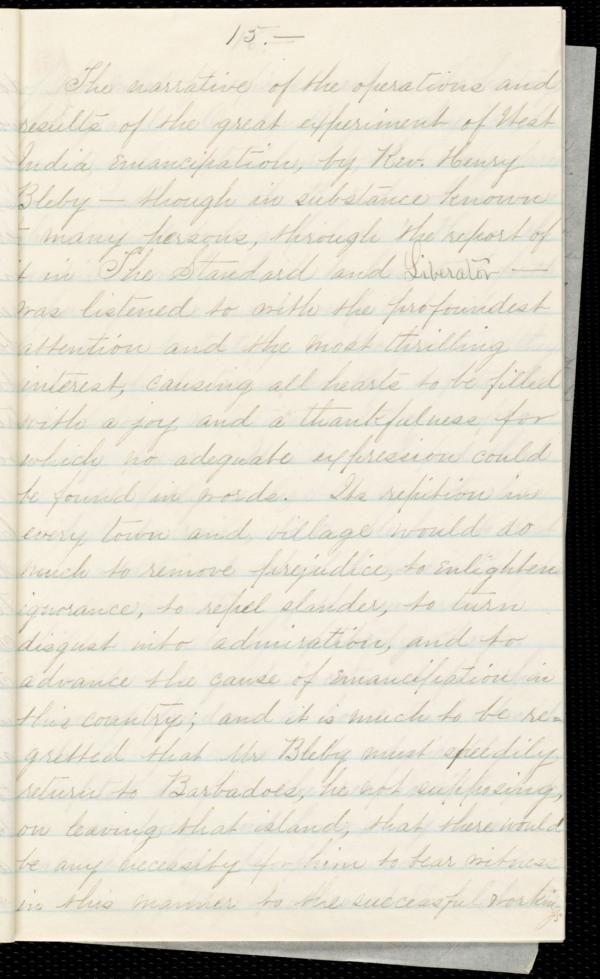 15. —
The narrative of the operations and
results of the great experiment of West
India Emancipation, by Rev. Henry
Bleby — though in substance known
many persons, through the report of
it in The Standard and Liberator —
was listened to with the profoundest
attention and the most thrilling
interest, causing all hearts to be filled
with a joy and a thankfulness for
which no adequate expression could
be found in words. Its repition in
every town and village would do
much to remove prejudice, to enlighten
ignorance, to repel slander, to turn
disgust into admiration, and to
advance the cause of emancipation in
this country; and it is much to be re=
gretted that Mr Bleby must speedily
return to Barbadoes, he not supposing,
on leaving that island, that there would
be any necessity for him to bear witness
in this manner to the successful workings